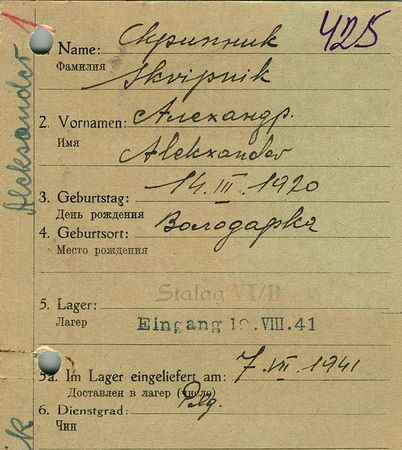 1
425
Name: Скрипник
Фамилия
Skripnik
2. Vornamen: Александр.
Имя
Alekxander
14. III. 1920
3. Geburtstag:
День рождения
4. Geburtsort: Володарка
Место рождения
Stalag VI/B
5. Lager:
Лагер
Eingang VIII.41
5a. Im Lager eingeliefert am: 7. VII. 1941
Доставлен в лагер (число)
6. Dienstgrad:
Чин
Aleksander
k